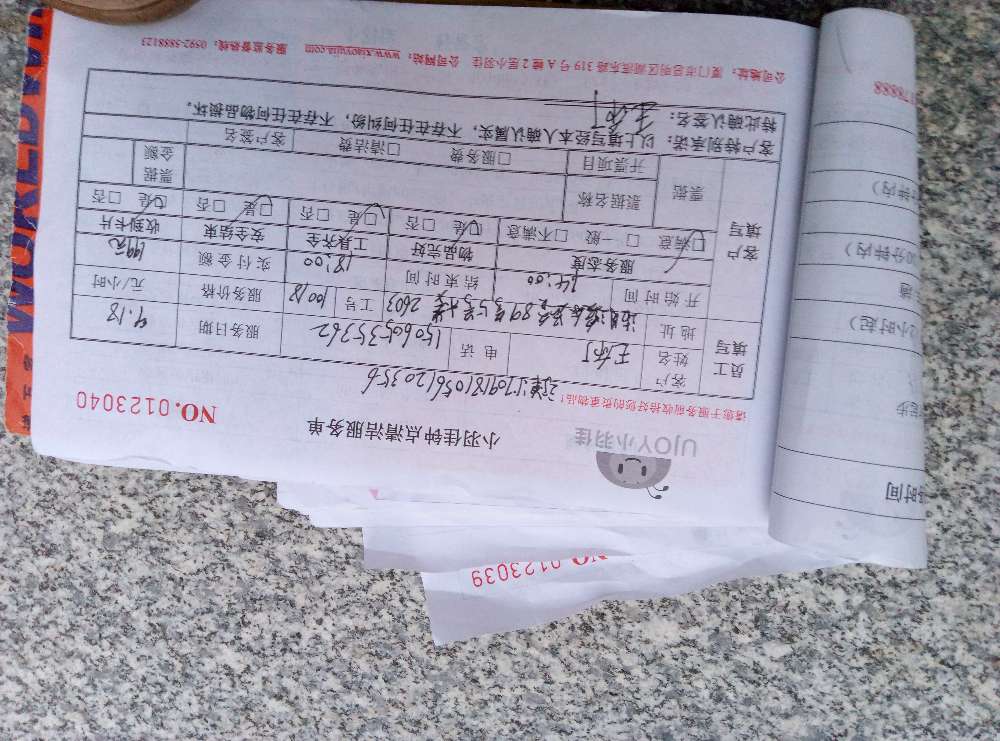 UJOY小羽佳
小羽佳钟点清洁服务单
NO.0123040
请您于服务前收拾好您的贵重物品!
员工填写
客户姓名
电话
15060535262
服务日期
9.18
地址
89号
2603
工号
10018
服务价格
元/小时
开始时间
14:00
结束时间
18:00
实付金额
199元
客户填写
服务态度
物品完好
工具齐全
安全结束
收到卡片
□满意 □一般 □不满意
□是 □否
□是 □否
□是 □否
□是 □否
票据
票据名称
票据金额
开票项目
□服务费 □清洁费
客户签名
客户特别承诺:以上填写经本人确认属实,不存在任何纠纷,不存在任何物品损坏。
特此确认签名:
公司地址:厦门市思明区湖滨东路319号A幢2层小羽佳 公司网站:www.xiaoyujia.com 服务监督热线:0592-5888123
NO.0123039
78888